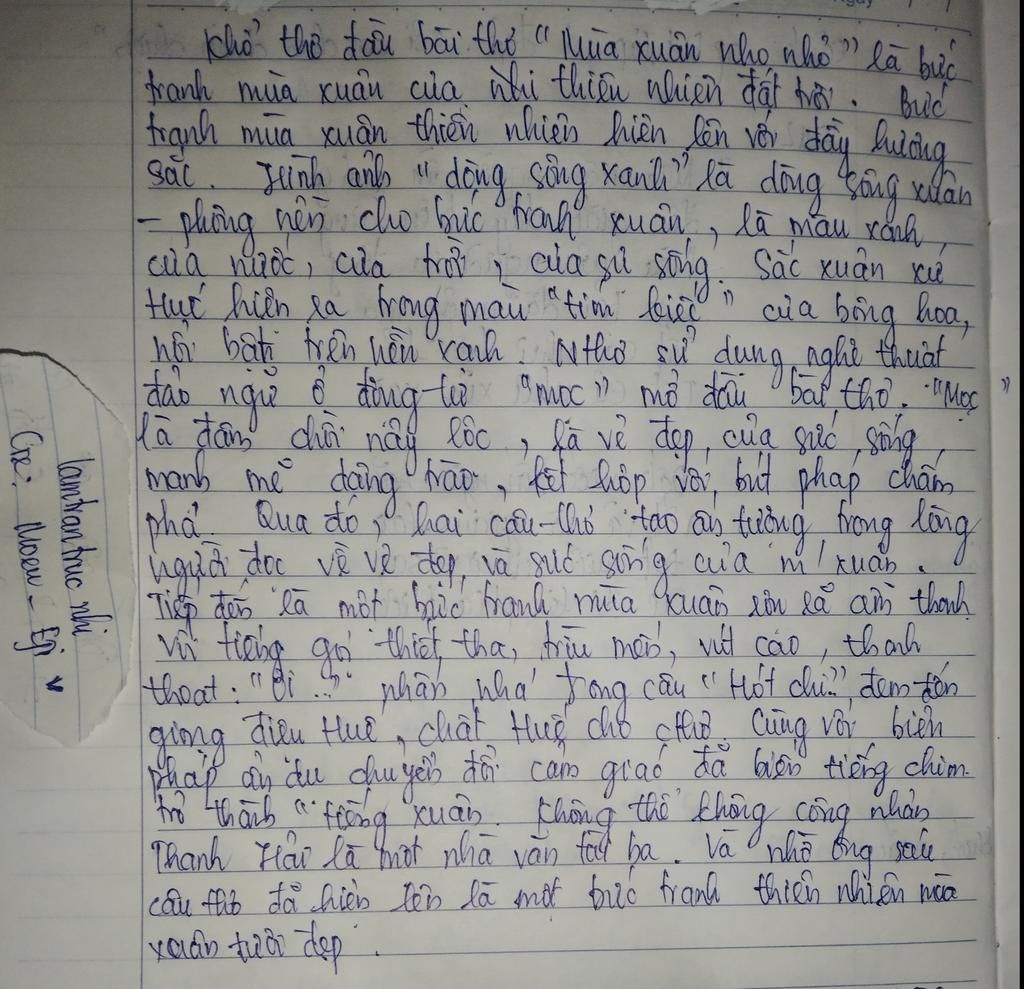 Khổ thơ đầu bài thơ "Mùa xuân nho nhỏ" là bức
tranh mùa xuân của thiên nhiên đất trời. Bức
tranh mùa xuân thiên nhiên hiện lên với đầy hương
sắc. Hình ảnh "dòng sông xanh" là dòng sông xuân
- phông nền cho bức tranh xuân, là màu xanh
của nước, của trời, của sự sống. Sắc xuân xứ
Huế hiện ra trong màu "tím biếc" của bông hoa,
nổi bật trên nền xanh. Nthơ sử dụng nghệ thuật
đảo ngữ ở động từ "mọc" mở đầu bài thơ. "Mọc"
là đâm chồi nảy lộc, là vẻ đẹp của sức sống
mạnh mẽ dâng trào, kết hợp với bút pháp chấm
phá. Qua đó, hai câu thơ tạo ấn tượng trong lòng
người đọc về vẻ đẹp và sức sống của m' xuân.
Tiếp đến là một bức tranh mùa xuân rộn rã âm thanh
với tiếng gọi thiết tha, trìu mến, vút cao, thanh
thoát: "Ơi ..." nhấn nhá trong câu "Hót chi.." đem đến
giọng điệu Huế, chất Huế cho thơ. Cùng với biện
pháp ẩn dụ chuyển đổi cảm giác đã biến tiếng chim
trở thành "tiếng xuân. Không thể không công nhận
Thanh Hải là một nhà văn tài ba. Và nhờ ông sáu
câu thơ đã hiện lên là một bức tranh thiên nhiên mùa
xuân tươi đẹp.
lamtrantruc nhi
Cre: Moew - Eji